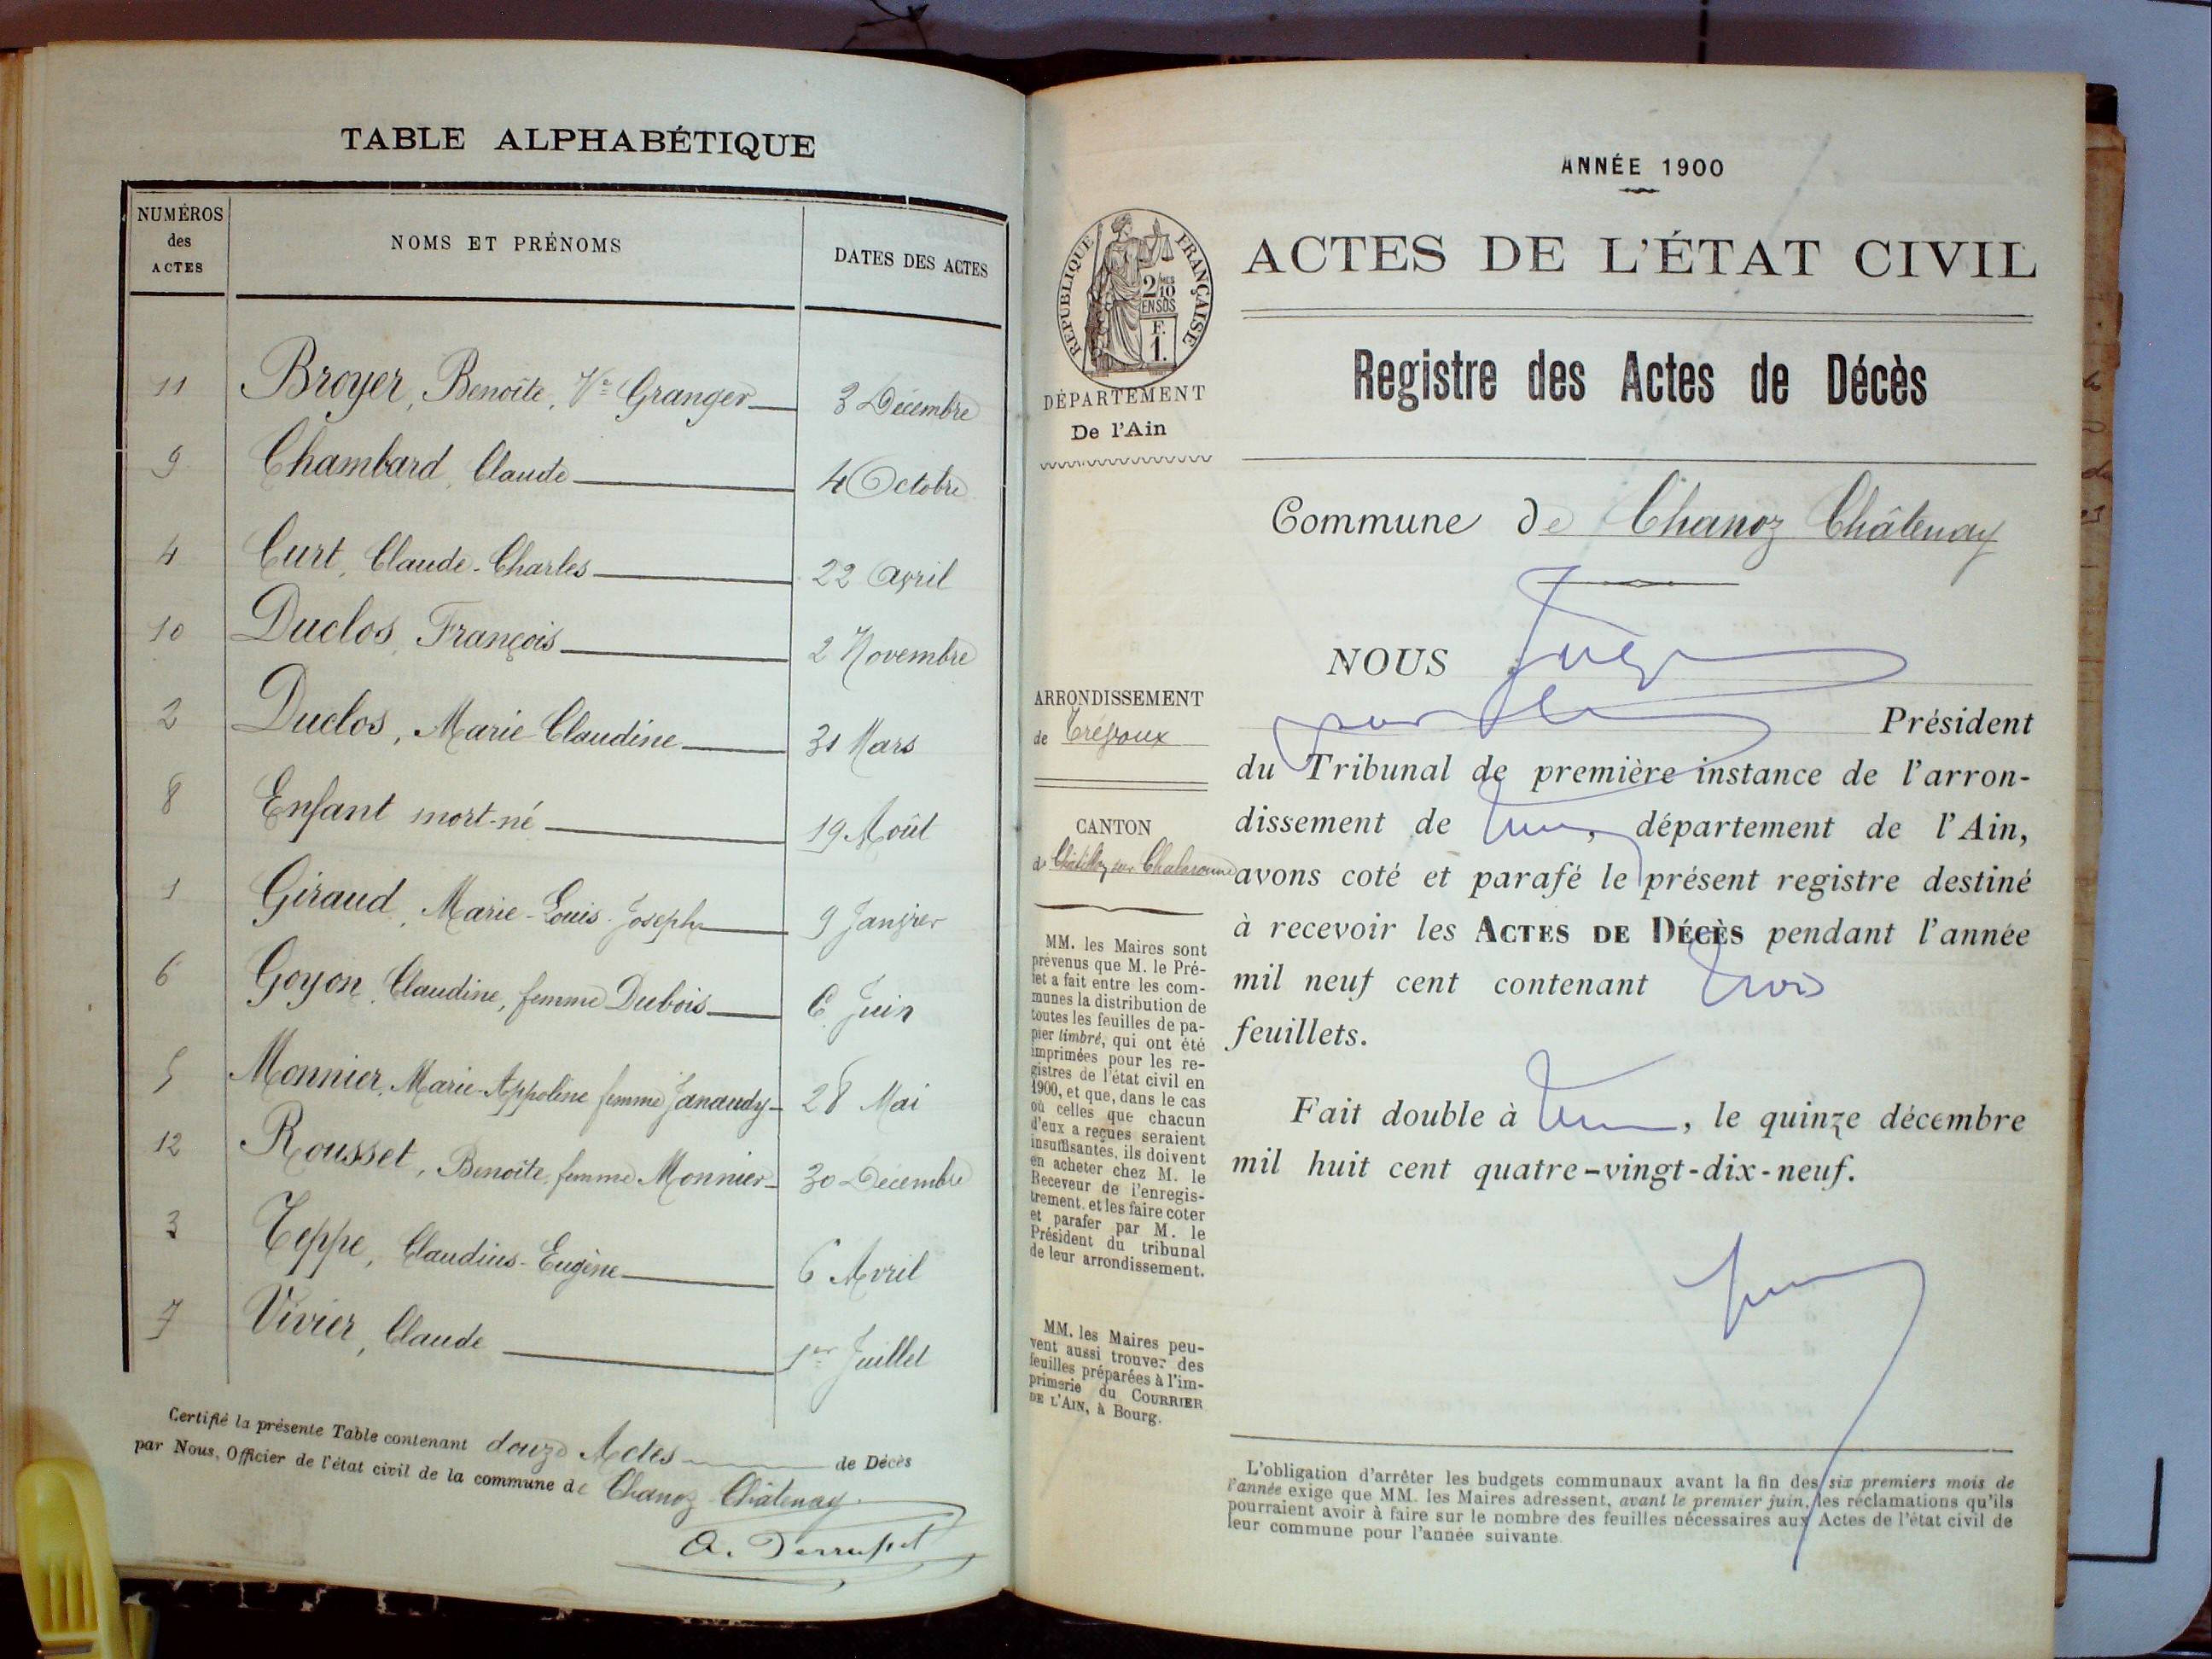 TABLE ALPHABÉTIQUE
NUMÉROS des ACTES
NOMS ET PRÉNOMS
DATES DES ACTES
11 Broyer, Benoîte, Ve Granger 3 Décembre
9 Chambard, Claude 4 Octobre
4 Curt, Claude-Charles 22 Avril
10 Duclos, François 2 Novembre
2 Duclos, Marie-Claudine 31 Mars
8 Enfant mort-né 19 Août
1 Giraud, Marie-Louis-Joseph 9 Janvier
6 Goyon, Claudine, femme Dubois 6 Juin
5 Monnier, Marie-Appoline femme Janaudy 28 Mai
12 Rousset, Benoîte, femme Monnier 30 Décembre
3 Teppe, Claudius-Eugène 6 Avril
7 Vivier, Claude 1er Juillet
Certifié la présente Table contenant douze Actes de Décès
par Nous, Officier de l'état civil de la commune de Chanoz Châtenay
ANNÉE 1900
RÉPUBLIQUE FRANÇAISE
2/10 MES
EN SUS
F.
1.
DÉPARTEMENT
De l'Ain
ACTES DE L'ÉTAT CIVIL
Registre des Actes de Décès
Commune de Chanoz Châtenay
ARRONDISSEMENT
de Trévoux
CANTON
de Châtillon sur Chalaronne
MM. les Maires sont
prévenus que M. le Pré-
fet a fait entre les com-
munes la distribution de
toutes les feuilles de pa-
pier timbré, qui ont été
imprimées pour les re-
gistres de l'état civil en
1900, et que, dans le cas
où celles que chacun
d'eux a reçues seraient
insuffisantes, ils doivent
en acheter chez M. le
Receveur de l'enregis-
trement, et les faire coter
et parafer par M. le
Président du tribunal
de leur arrondissement.
MM. les Maires peu-
vent aussi trouver des
feuilles préparées à l'im-
primerie du COURRIER
DE L'AIN, à Bourg.
NOUS
Président
du Tribunal de première instance de l'arron-
dissement de , département de l'Ain,
avons coté et parafé le présent registre destiné
à recevoir les ACTES DE DÉCÈS pendant l'année
mil neuf cent contenant trois
feuillets.
Fait double à , le quinze décembre
mil huit cent quatre-vingt-dix-neuf.
L'obligation d'arrêter les budgets communaux avant la fin des six premiers mois de
l'année exige que MM. les Maires adressent, avant le premier juin, les réclamations qu'ils
pourraient avoir à faire sur le nombre des feuilles nécessaires aux Actes de l'état civil de
leur commune pour l'année suivante.